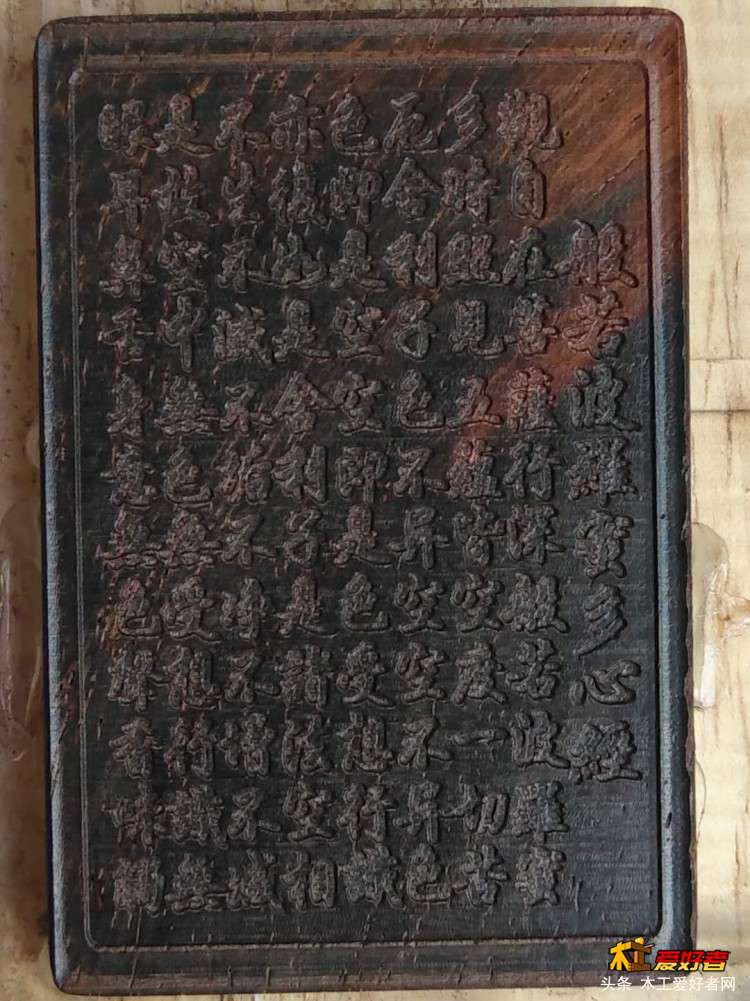 般若波羅蜜多心經
觀自在菩薩行深般若波羅蜜
多時照見五蘊皆空度一切苦
厄舍利子色不异空空不异色
色即是空空即是色受想行識
亦復比是舍利子是諸法空相
不生不滅不垢不净不增不減
是故空中無色無受行識無
眼耳鼻舌身意無色聲香味觸
木工爱好者
头条 木工爱好者网